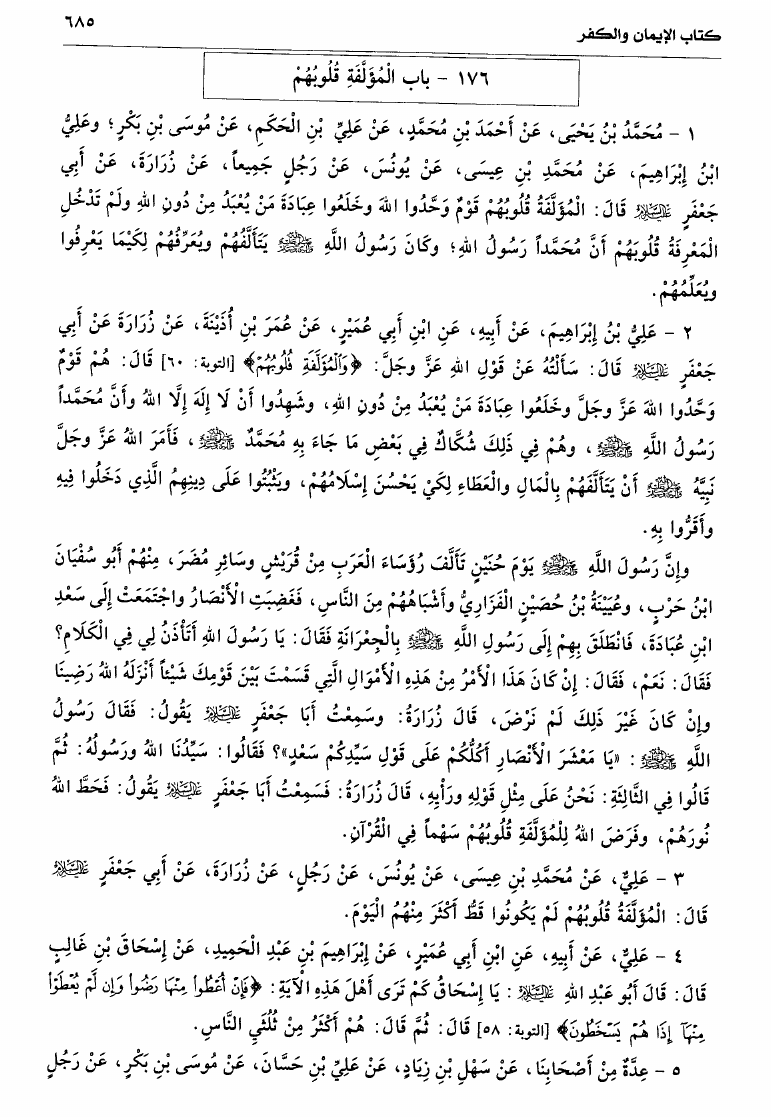 كتاب الإيمان والكفر
٦٨٥
١٧٦ - باب الْمُؤَلَّفَةِ قُلُوبُهُمْ
١ - مُحَمَّدُ بْنُ يَحْيَى، عَنْ أَحْمَدَ بْنِ مُحَمَّدٍ، عَنْ عَلِيِّ بْنِ الْحَكَمِ، عَنْ مُوسَى بْنِ بَكْرٍ؛ وعَلِيُّ
ابْنُ إِبْرَاهِيمَ، عَنْ مُحَمَّدِ بْنِ عِيسَى، عَنْ يُونُسَ، عَنْ رَجُلٍ جَمِيعاً، عَنْ زُرَارَةَ، عَنْ أَبِي
جَعْفَرٍ عَلَيْهِ السَّلَامُ قَالَ: الْمُؤَلَّفَةُ قُلُوبُهُمْ قَوْمٌ وَحَّدُوا اللهَ وخَلَعُوا عِبَادَةَ مَنْ يُعْبَدُ مِنْ دُونِ اللهِ ولَمْ تَدْخُلِ
الْمَعْرِفَةُ قُلُوبَهُمْ أَنَّ مُحَمَّداً رَسُولُ اللهِ؛ وكَانَ رَسُولُ اللَّهِ ﷺ يَتَأَلَّفُهُمْ ويُعَرِّفُهُمْ لِكَيْمَا يَعْرِفُوا
ويُعَلِّمُهُمْ.
٢ - عَلِيُّ بْنُ إِبْرَاهِيمَ، عَنْ أَبِيهِ، عَنِ ابْنِ أَبِي عُمَيْرٍ، عَنْ عُمَرَ بْنِ أُذَيْنَةَ، عَنْ زُرَارَةَ عَنْ أَبِي
جَعْفَرٍ عَلَيْهِ السَّلَامُ قَالَ: سَأَلْتُهُ عَنْ قَوْلِ اللهِ عَزَّ وجَلَّ: ﴿وَٱلْمُؤَلَّفَةِ قُلُوبُهُمْ﴾ [التوبة: ٦٠] قَالَ: هُمْ قَوْمٌ
وَحَّدُوا اللهَ عَزَّ وجَلَّ وخَلَعُوا عِبَادَةَ مَنْ يُعْبَدُ مِنْ دُونِ اللهِ، وشَهِدُوا أَنْ لَا إِلَهَ إِلَّا اللهُ وأَنَّ مُحَمَّداً
رَسُولُ اللَّهِ ﷺ، وهُمْ فِي ذَلِكَ شُكَّاكٌ فِي بَعْضِ مَا جَاءَ بِهِ مُحَمَّدٌ ﷺ، فَأَمَرَ اللهُ عَزَّ وجَلَّ
نَبِيَّهُ ﷺ أَنْ يَتَأَلَّفَهُمْ بِالْمَالِ والْعَطَاءِ لِكَيْ يَحْسُنَ إِسْلَامُهُمْ، ويَثْبُتُوا عَلَى دِينِهِمُ الَّذِي دَخَلُوا فِيهِ
وأَقَرُّوا بِهِ.
وإِنَّ رَسُولَ اللَّهِ ﷺ يَوْمَ حُنَيْنٍ تَأَلَّفَ رُؤَسَاءَ الْعَرَبِ مِنْ قُرَيْشٍ وسَائِرِ مُضَرَ، مِنْهُمْ أَبُو سُفْيَانَ
ابْنُ حَرْبٍ، وعُيَيْنَةُ بْنُ حُصَيْنٍ الْفَزَارِيُّ وأَشْبَاهُهُمْ مِنَ النَّاسِ، فَغَضِبَتِ الْأَنْصَارُ واجْتَمَعَتْ إِلَى سَعْدِ
ابْنِ عُبَادَةَ، فَانْطَلَقَ بِهِمْ إِلَى رَسُولِ اللَّهِ ﷺ بِالْجِعْرَانَةِ فَقَالَ: يَا رَسُولَ اللهِ أَتَأْذَنُ لِي فِي الْكَلَامِ؟
فَقَالَ: نَعَمْ، فَقَالَ: إِنْ كَانَ هَذَا الْأَمْرُ مِنْ هَذِهِ الْأَمْوَالِ الَّتِي قَسَمْتَ بَيْنَ قَوْمِكَ شَيْئاً أَنْزَلَهُ اللهُ رَضِينَا
وإِنْ كَانَ غَيْرَ ذَلِكَ لَمْ نَرْضَ، قَالَ زُرَارَةُ: وسَمِعْتُ أَبَا جَعْفَرٍ عَلَيْهِ السَّلَامُ يَقُولُ: فَقَالَ رَسُولُ
اللَّهِ ﷺ: «يَا مَعْشَرَ الْأَنْصَارِ أَكُلُّكُمْ عَلَى قَوْلِ سَيِّدِكُمْ سَعْدٍ»؟ فَقَالُوا: سَيِّدُنَا اللهُ ورَسُولُهُ: ثُمَّ
قَالُوا فِي الثَّالِثَةِ: نَحْنُ عَلَى مِثْلِ قَوْلِهِ ورَأْيِهِ، قَالَ زُرَارَةُ: فَسَمِعْتُ أَبَا جَعْفَرٍ عَلَيْهِ السَّلَامُ يَقُولُ: فَحَطَّ اللهُ
نُورَهُمْ، وفَرَضَ اللهُ لِلْمُؤَلَّفَةِ قُلُوبُهُمْ سَهْماً فِي الْقُرْآنِ.
٣ - عَلِيٌّ، عَنْ مُحَمَّدِ بْنِ عِيسَى، عَنْ يُونُسَ، عَنْ رَجُلٍ، عَنْ زُرَارَةَ، عَنْ أَبِي جَعْفَرٍ عَلَيْهِ السَّلَامُ
قَالَ: الْمُؤَلَّفَةُ قُلُوبُهُمْ لَمْ يَكُونُوا قَطُّ أَكْثَرَ مِنْهُمُ الْيَوْمَ.
٤ - عَلِيٌّ، عَنْ أَبِيهِ، عَنِ ابْنِ أَبِي عُمَيْرٍ، عَنْ إِبْرَاهِيمَ بْنِ عَبْدِ الْحَمِيدِ، عَنْ إِسْحَاقَ بْنِ غَالِبٍ
قَالَ: قَالَ أَبُو عَبْدِ اللهِ عَلَيْهِ السَّلَامُ: يَا إِسْحَاقُ كَمْ تَرَى أَهْلَ هَذِهِ الْآيَةِ: ﴿فَإِنْ أُعْطُوا۟ مِنْهَا رَضُوا۟ وَإِن لَّمْ يُعْطَوْا۟
مِنْهَآ إِذَا هُمْ يَسْخَطُونَ﴾ [التوبة: ٥٨] قَالَ: ثُمَّ قَالَ: هُمْ أَكْثَرُ مِنْ ثُلُثَيِ النَّاسِ.
٥ - عِدَّةٌ مِنْ أَصْحَابِنَا، عَنْ سَهْلِ بْنِ زِيَادٍ، عَنْ عَلِيِّ بْنِ حَسَّانَ، عَنْ مُوسَى بْنِ بَكْرٍ، عَنْ رَجُلٍ